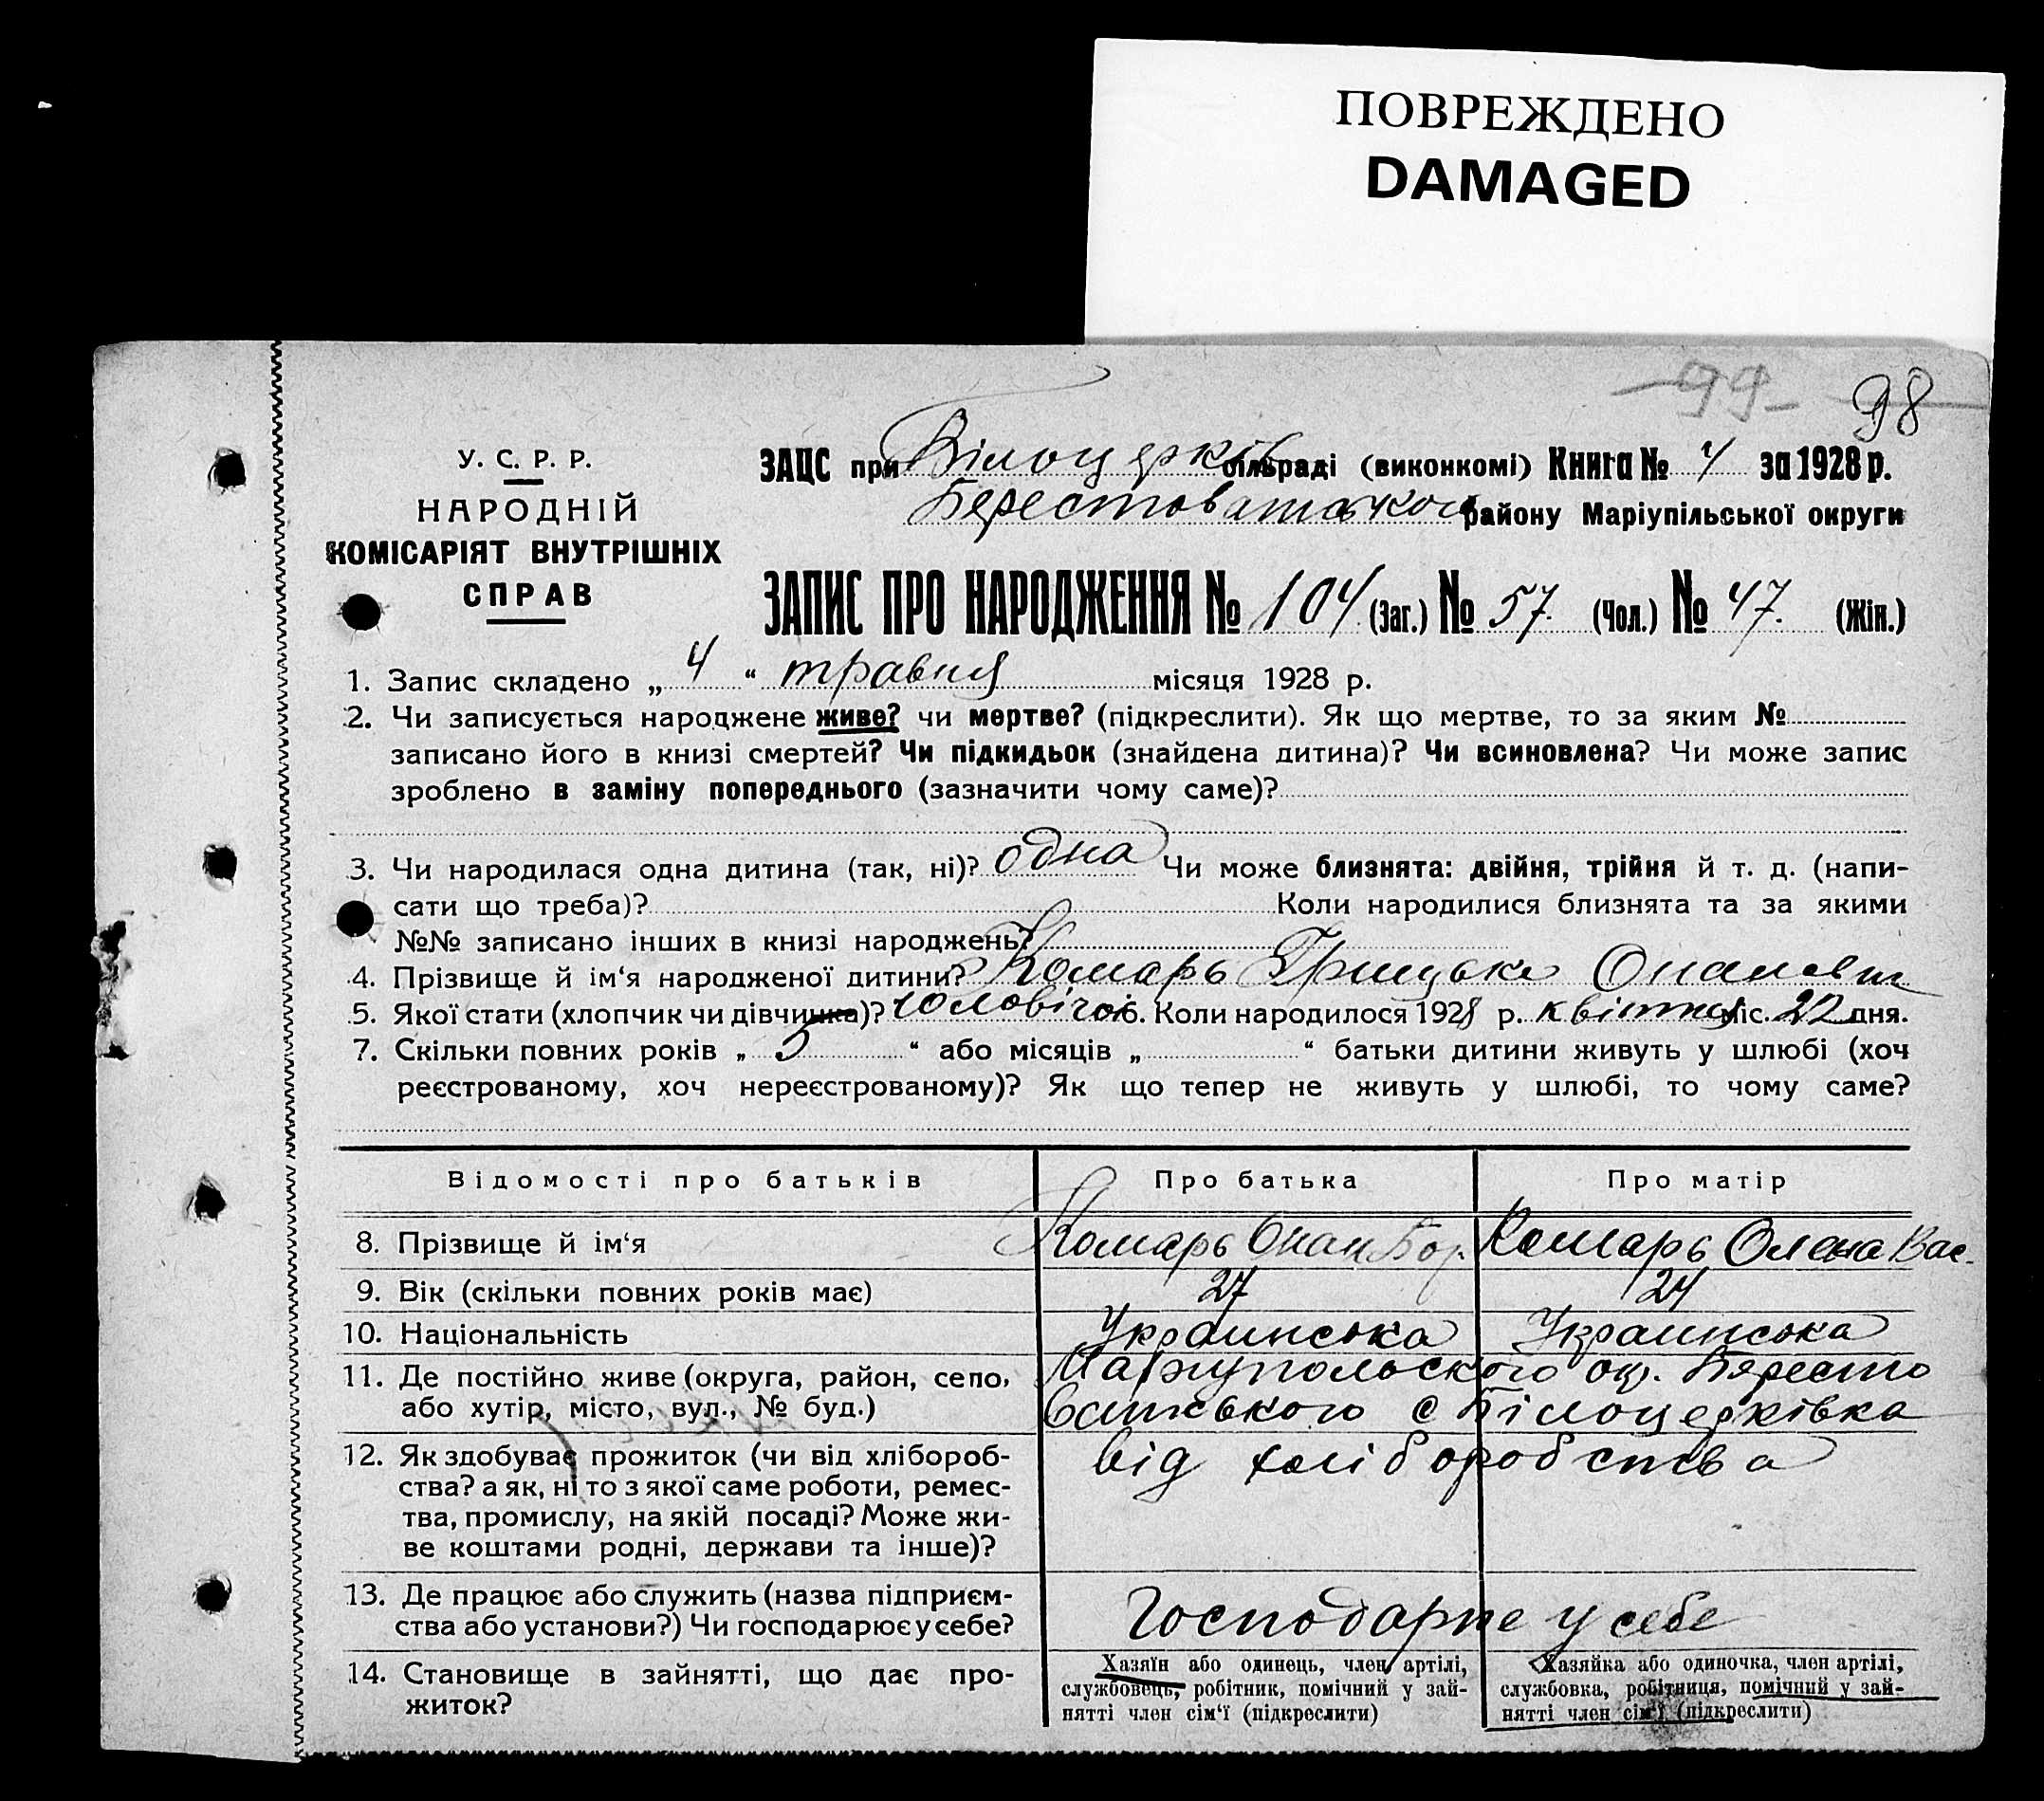 ПОВРЕЖДЕНО
DAMAGED
-99-
98
У. С. Р. Р.
НАРОДНІЙ
КОМІСАРІЯТ ВНУТРІШНІХ
СПРАВ
ЗАЦС при Білоцерків сільраді (виконкомі) Книга № 4 за 1928 р.
Берестоватського району Маріупільської округи
ЗАПИС ПРО НАРОДЖЕННЯ № 104 (Заг.) № 57. (Чол.) № 47. (Жін.)
1. Запис складено „ 4 “ травня місяця 1928 р.
2. Чи записується народжене живе? чи мертве? (підкреслити). Як що мертве, то за яким №
записано його в книзі смертей? Чи підкидьок (знайдена дитина)? Чи всиновлена? Чи може запис
зроблено в заміну попереднього (зазначити чому саме)?
3. Чи народилася одна дитина (так, ні)? одна Чи може близнята: двійня, трійня й т. д. (напи-
сати що треба)? Коли народилися близнята та за якими
№№ записано інших в книзі народжень?
4. Прізвище й ім‘я народженої дитини? Комарь Грицько
5. Якої стати (хлопчик чи дівчинка)? чоловічої 6. Коли народилося 1928 р. квітня міс. 22 дня.
7. Скільки повних років „ 5 “ або місяців „ “ батьки дитини живуть у шлюбі (хоч
реєстрованому, хоч нереєстрованому)? Як що тепер не живуть у шлюбі, то чому саме?
Відомості про батьків Про батька Про матір
8. Прізвище й ім‘я Комарь Опан Бор. Комарь Олена Вас.
9. Вік (скільки повних років має) 27 24
10. Національність Украинська Украинська
11. Де постійно живе (округа, район, село, Мариупольского окр. Бересто
або хутір, місто, вул., № буд.) ватського с Білоцерківка
12. Як здобуває прожиток (чи від хлібороб- від хліборобства
ства? а як, ні то з якої саме роботи, ремес-
тва, промислу, на якій посаді? Може жи-
ве коштами родні, держави та інше)?
13. Де працює або служить (назва підприєм-
ства або установи?) Чи господарює у себе? Господарює у себе
14. Становище в зайнятті, що дає про-
житок?
Хазяїн або одинець, член артілі,
службовець, робітник, помічний у зай-
нятті член сім‘ї (підкреслити)
Хазяйка або одиночка, член артілі,
службовка, робітниця, помічний у зай-
нятті член сім‘ї (підкреслити)